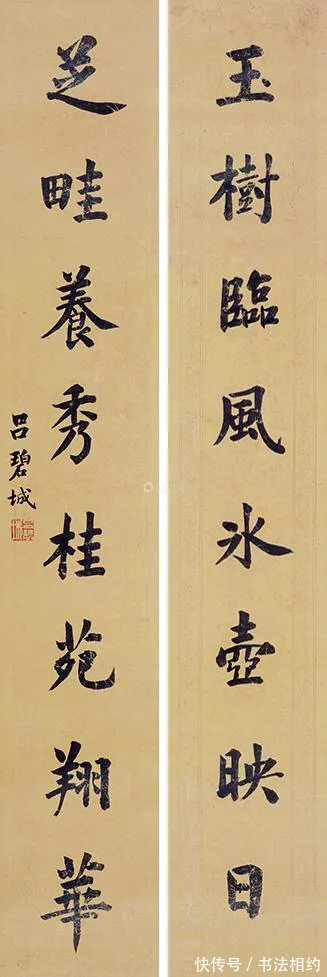 玉樹臨風冰壺映日
芝畦養秀桂苑翔華
呂碧城
快传号/书法相约